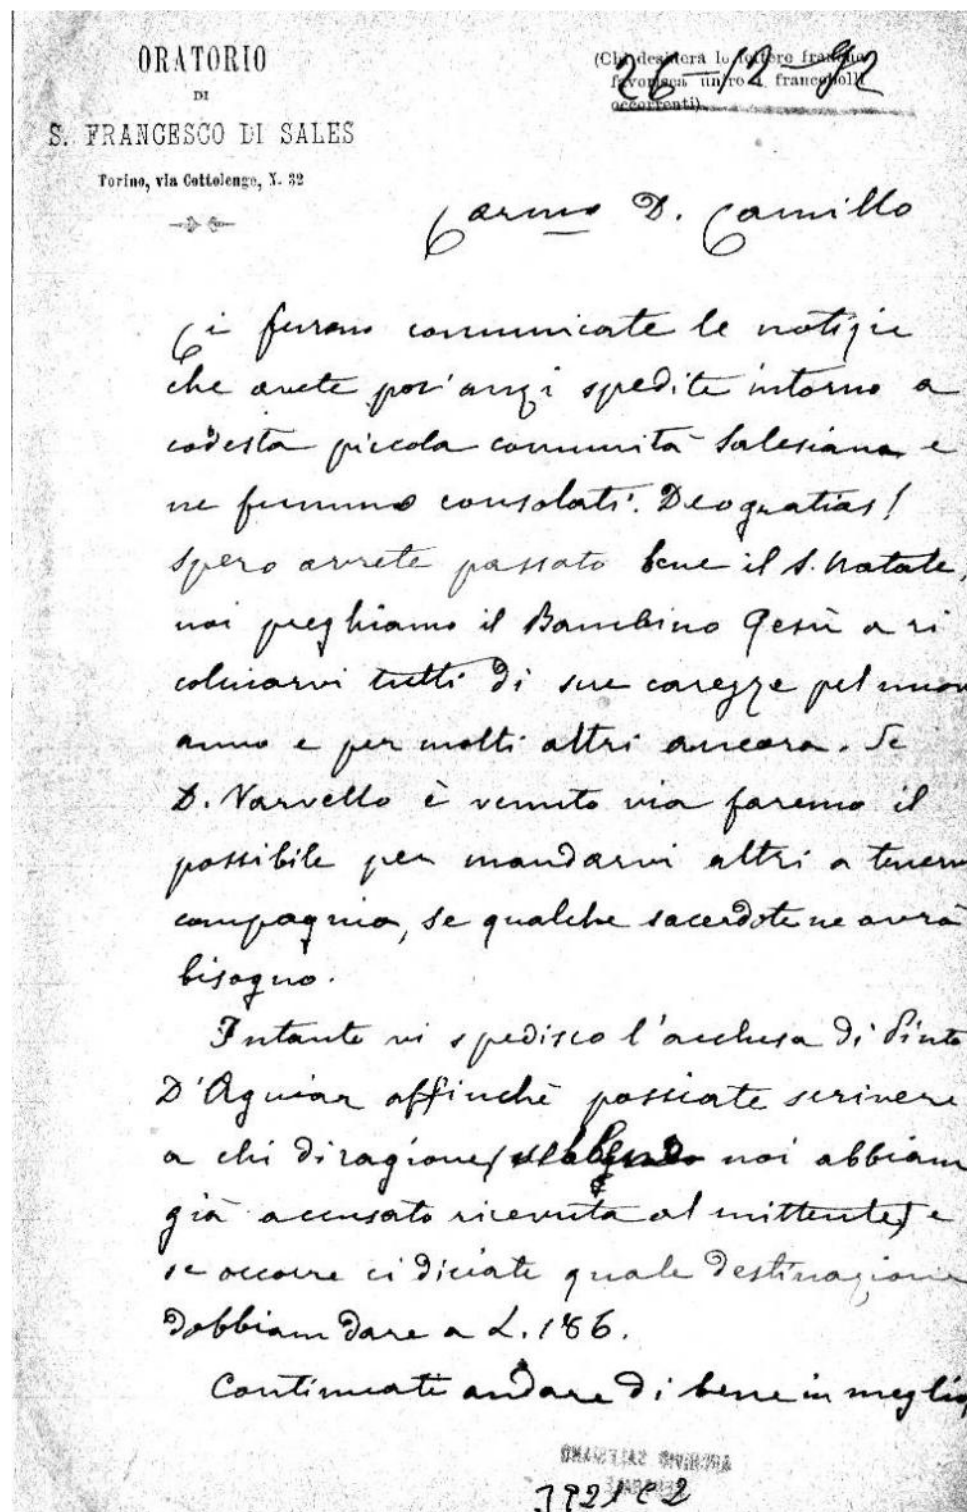 ORATORIO
DI
S. FRANCESCO DI SALES
Torino, via Cottolengo, N. 32
(Chi desidera le lettere francate
favorisca unire i francobolli
occorrenti).
26-12-92
Carmo D. Camillo
Ci furono comunicate le notizie
che avete pov'anzi spedite intorno a
codesta piccola comunità Salesiana e
ne fummo consolati. Deo gratias!
Spero avrete passato bene il S. Natale,
noi preghiamo il Bambino Gesù a ri
colmarvi tutti di sue carezze pel nuov
anno e per molti altri ancora. Se
D. Varvello è venuto via faremo il
possibile per mandarvi altri a tenerv
compagnia, se qualche sacerdote ne avrà
bisogno.
Intanto vi spedisco l'acclusa di Pinto
D'Aguiar affinchè possiate scrivere
a chi di ragione, noi abbiam
già accusato ricevuta al mittente) e
se occorre ci diciate quale destinazione
dobbiam dare a L. 186.
Continuate andare di bene in meglio,
ARCHIVIO SALESIANO
CENTRALE